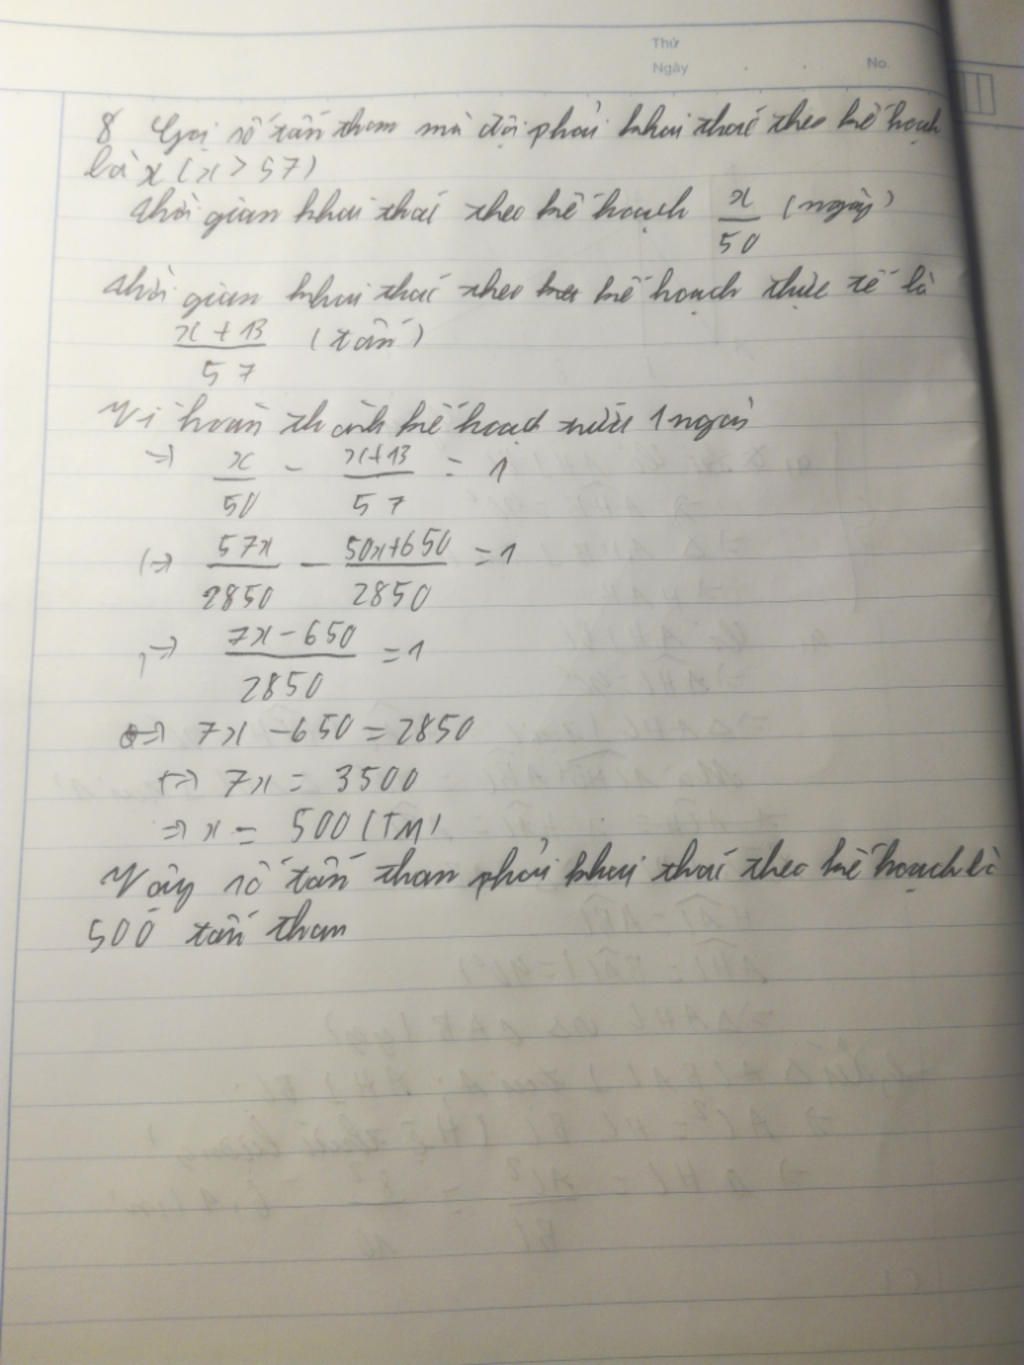 Thứ
Ngày No.
8 Gọi số tấn than mà đội phải khai thác theo kế hoạch
là x (x > 57)
thời gian khai thác theo kế hoạch x/50 (ngày)
thời gian khai thác theo kế hoạch thực tế là
x+13/57 (tấn)
Vì hoàn thành kế hoạch trước 1 ngày
=> x/50 - x+13/57 = 1
<=> 57x/2850 - 50x+650/2850 = 1
<=> 7x-650/2850 = 1
<=> 7x - 650 = 2850
<=> 7x = 3500
=> x = 500 (TM)
Vậy số tấn than phải khai thác theo kế hoạch là
500 tấn than